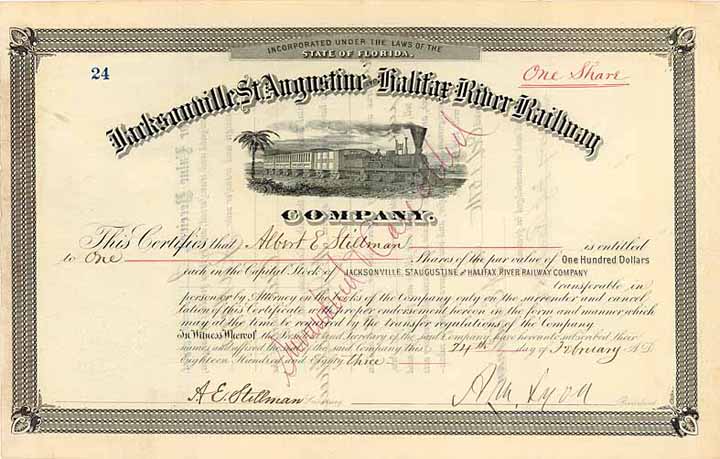 INCORPORATED UNDER THE LAWS OF THE
STATE OF FLORIDA.
24
One Share
Jacksonville, St. Augustine and Halifax River Railway
COMPANY.
This Certifies that Albert E Stillman is entitled
to One Shares of the par value of One Hundred Dollars
each in the Capital Stock of JACKSONVILLE, ST AUGUSTINE and HALIFAX RIVER RAILWAY COMPANY
transferable in
person or by Attorney on the books of the Company only on the surrender and cancel
lation of this Certificate and proper endorsement hereon in the form and manner which
may at the time be required by the transfer regulations of the Company
In Witness Whereof the President and Secretary of the said Company have hereunto subscribed their
names and affixed the seal of the said Company this 24th day of February A.D.
Eighteen Hundred and Eighty three
A. E. Stillman Secretary
President
Cancelled